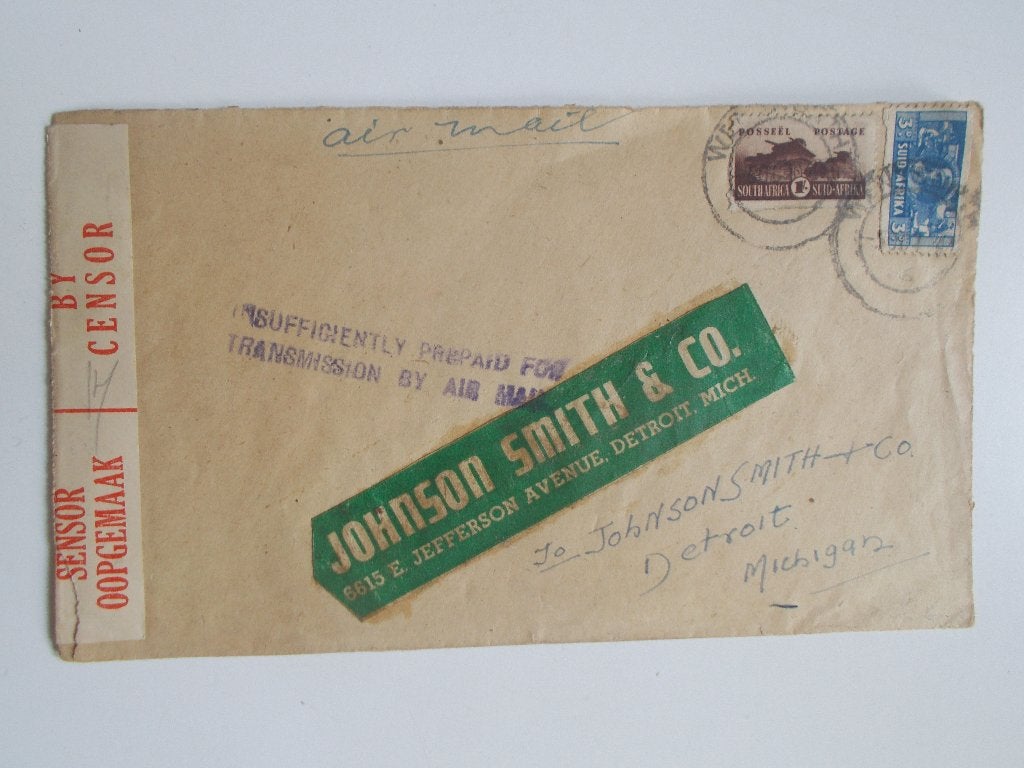 air mail
POSSEËL POSTAGE
SOUTH AFRICA 1/- SUID-AFRIKA
3D SUID-AFRIKA 3D
BY
CENSOR
SENSOR
OOPGEMAAK
INSUFFICIENTLY PREPAID FOR
TRANSMISSION BY AIR MAIL
JOHNSON SMITH & CO.
6615 E. JEFFERSON AVENUE, DETROIT, MICH.
To JOHNSON SMITH + Co.
Detroit
Michigan